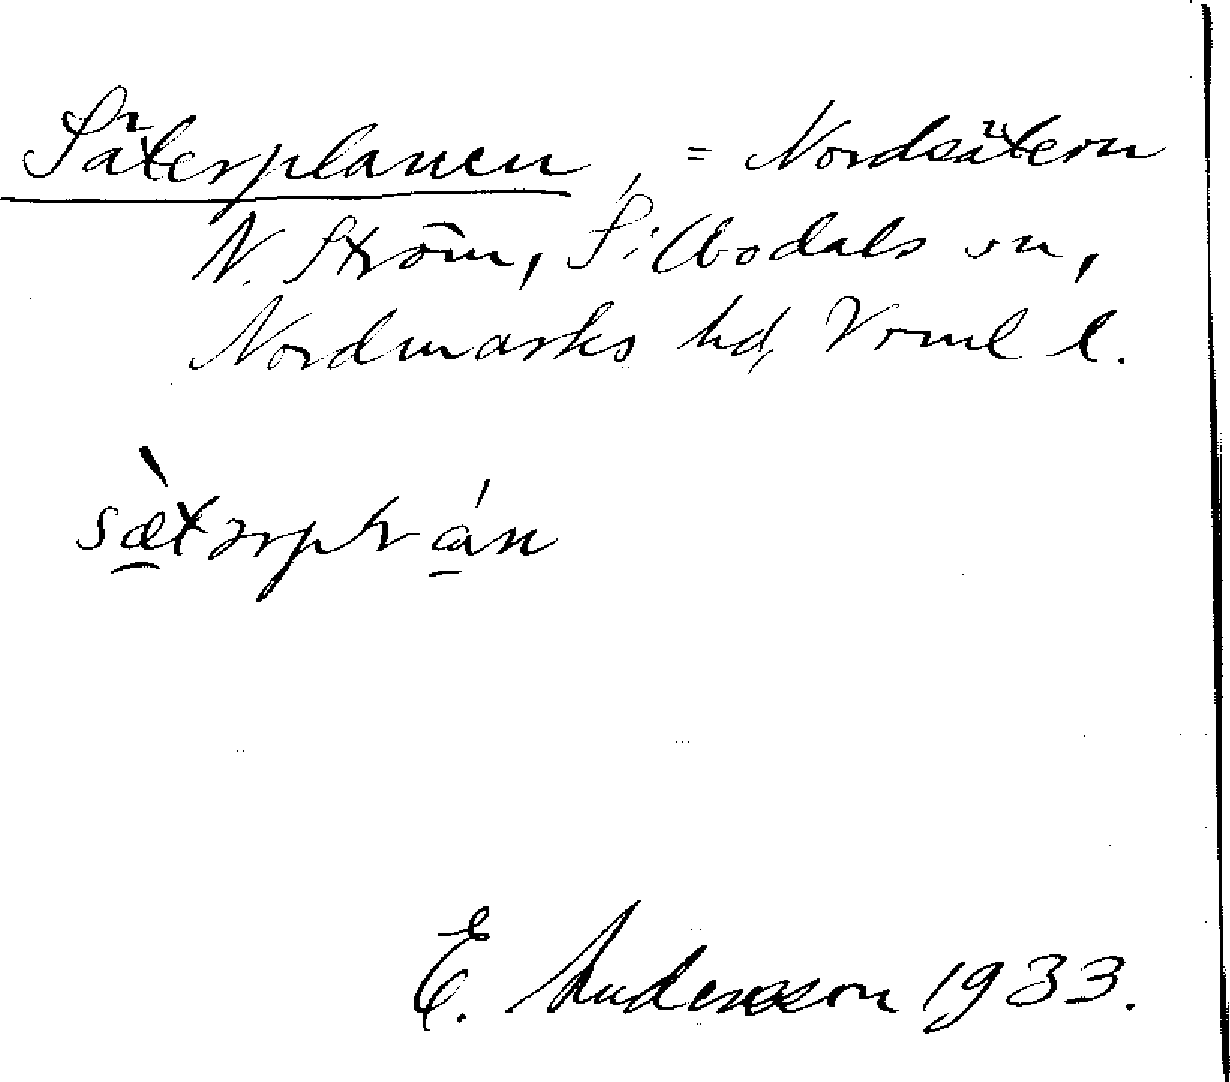 Säterplanen, = Nordsätern
N. Ström, Silbodals sn,
Nordmarks hd, Verml l.
E. Andersson 1933.